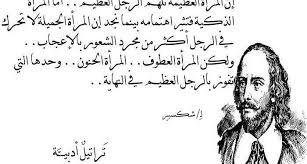 إن المرأة العظيمة تلهم الرجل العظيم .. أما المرأة
الذكية فتثير اهتمامه بينما نجد إن المرأة الجميلة لا تحرك
في الرجل أكثر من مجرد الشعور بالإعجاب ..
ولكن المرأة العطوف .. المرأة الحنون .. وحدها التي
تفوز بالرجل العظيم في النهاية .
لـ/ شكسبير
تراتيل أدبية